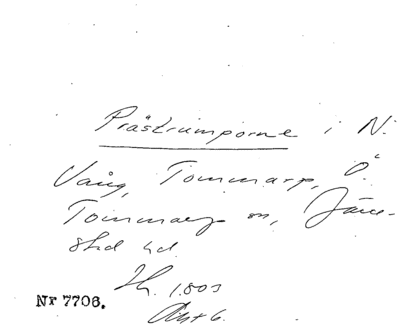 Prästrumporne i N.
Vång, Tommarp, Ö.
Tommarp sn, Järre-
stad hd.
Sk. 1803
Akt 6.
Nr 7706.